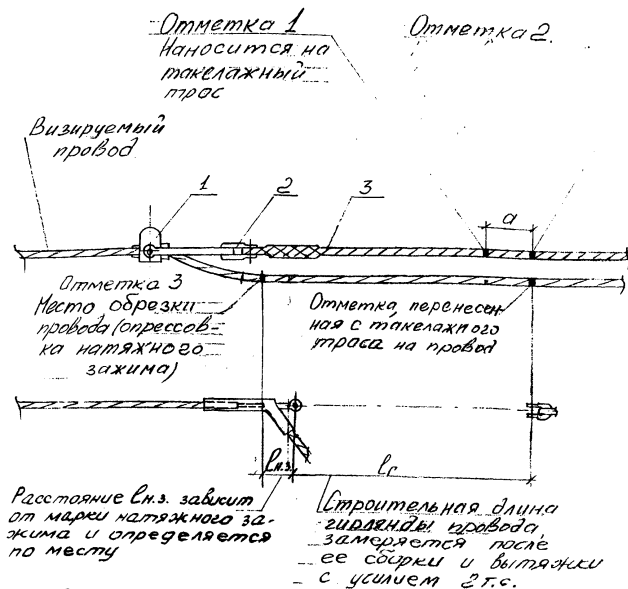 Отметка 1
Наносится на
такелажный
трас
Отметка 2.
Визируемый
провод
1
2
3
а
Отметка 3
Место обрезки
провода (опрессов-
ка натяжного
зажима)
Отметка, перенесен-
ная с такелажного
траса на провод
lн.з.
lг
Расстояние lн.з. зависит
от марки натяжного за-
жима и определяется
по месту
Строительная длина
гирлянды провода
замеряется после
ее сборки и вытяжки
с усилием 2т.с.